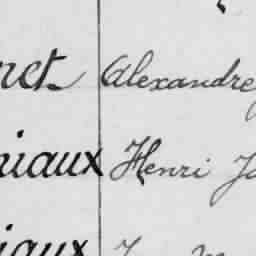 nct Alexandre
niaux Henri
iaux